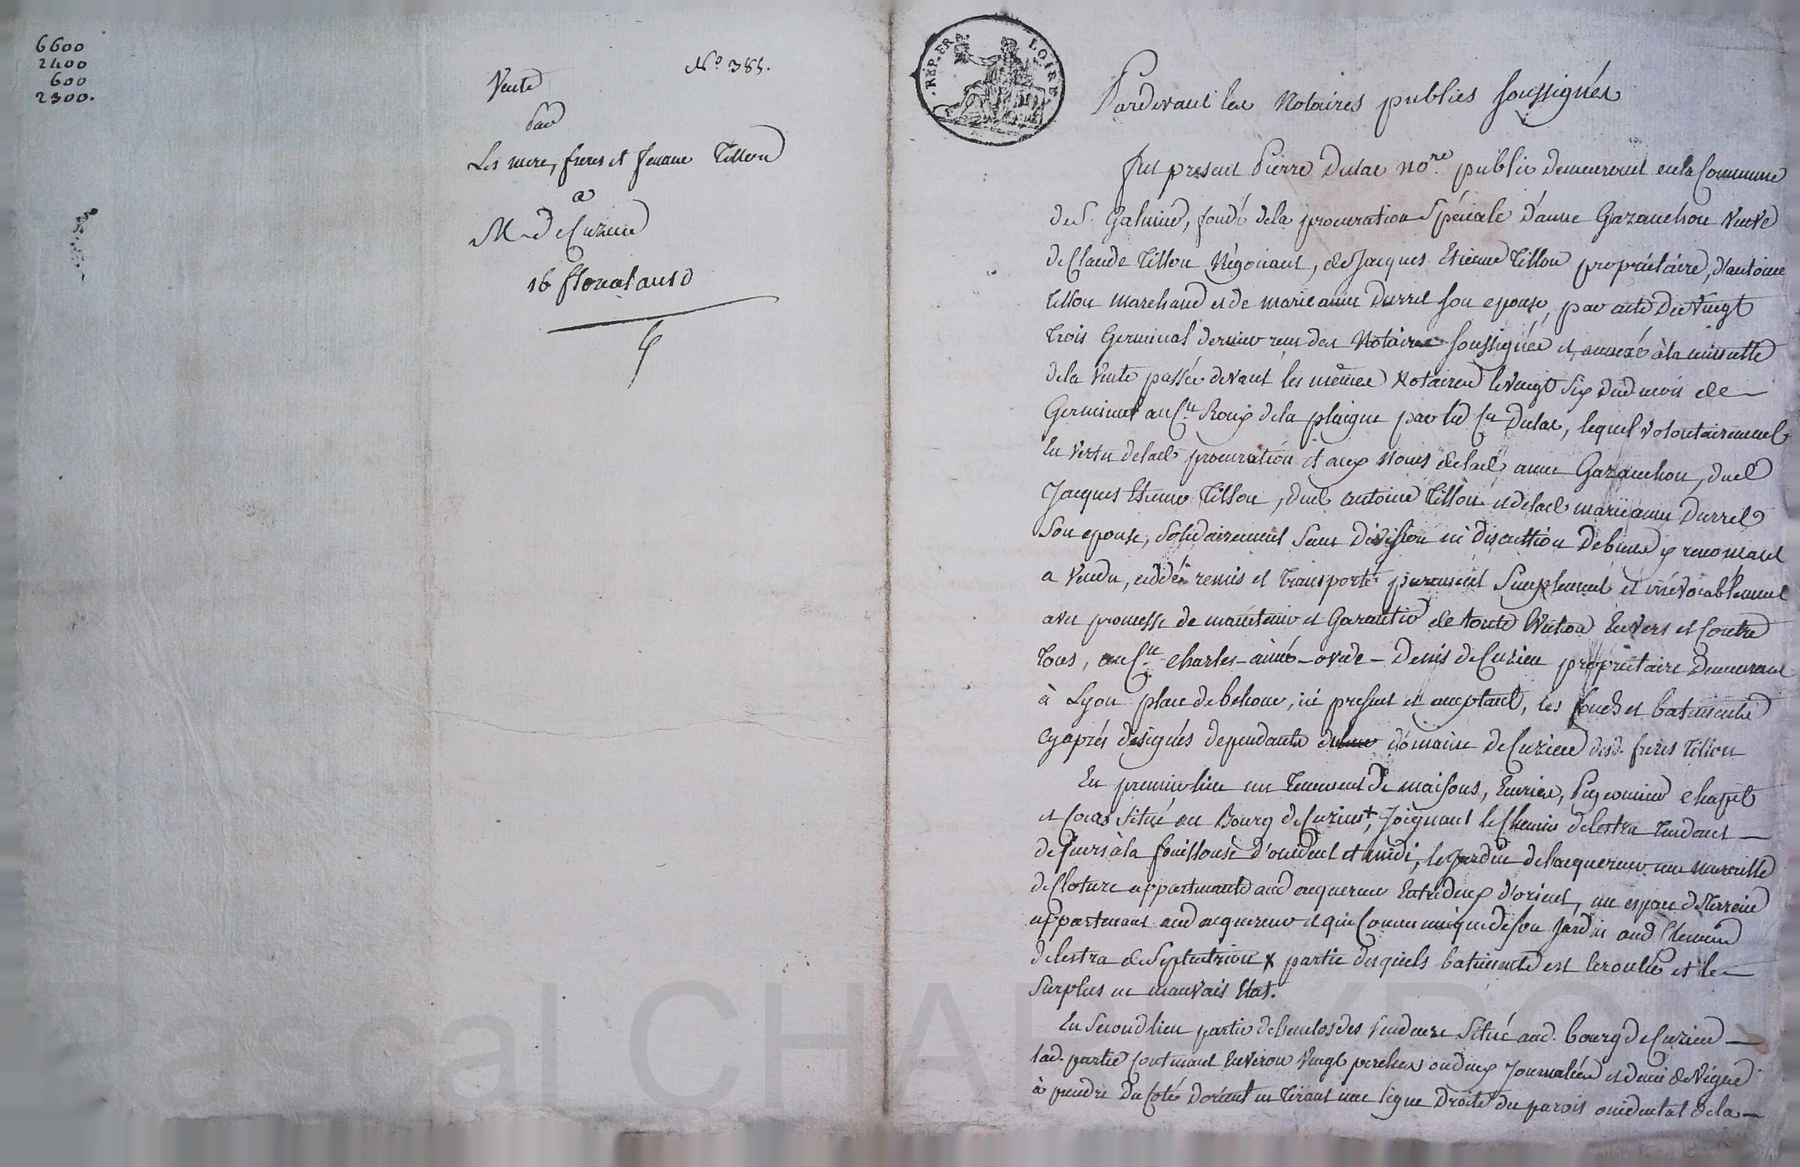 6600
2400
600
2300.
N.o 385.
Vente
Par
Les mere, freres et femme Tillon
a
M. De Curieu
16 floreal an 10
REP. FRA. LOIRE
Pardevant les Notaires publics soussignés
fut présent Pierre Dulac no.re public demeurant en la Commune
de S. Galmier, fondé de la procuration spéciale d'anne Gazanchon veuve
de Claude Tillon Négociant, de Jacques Etienne Tillon propriétaire, d'antoine
Tillon marchand et de marie anne Durret son epouse, par acte du vingt
trois Germinal dernier reçu des Notaires soussignés et annexé à la minutte
de la vente passée devant les mêmes Notaires le vingt six dud. mois de
Germinal au C.en Roux de la plaigne par led. C.en Dulac, lequel volontairement
En vertu de lad. procuration et aux noms de lad. anne Gazanchon, dud.
Jacques Etienne Tillon, dud. antoine Tillon et de lad. marie anne Durret
son epouse, solidairement sans division ni discution de biens y renonçant
a vendu, cédé remis et transporté purement simplement et irrévocablement
avec promesse de maintenir et Garantir de toute Eviction Envers et Contre
tous, au C.en Charles-aimé-ovide-Denis de Curieu propriétaire demeurant
à Lyon place de , ici present et acceptant, les fonds et batiments
cy après désignés dependants domaine de Curieu desd. freres Tillon
En premier lieu un Tenement de maisons, Ecuries, Pigeonnier chapit
et Cours situé au Bourg de Curieu +, Joignant le Chemin de lestra tendant
de à la fouillouse d'occident et midi, le Jardin de l'acquereur une muraille
de cloture appartenante aud. acquereur Entredeux d'orient, un espace de terrein
appartenant aud. acquereur et qui Communique de son Jardin aud. Chemin
de lestra de septentrion x partie desquels batiments est écroulée et le
surplus en mauvais Etat.
En second lieu partie de lenclos des vendeurs situé aud. bourg de Curieu
lad. partie Contenant Environ vingt perches ou deux Journalées et demie de vigne
à prendre du Coté d'orient en tirant une ligne droite du parois occidental de la
Pascal CHAMBEYRON